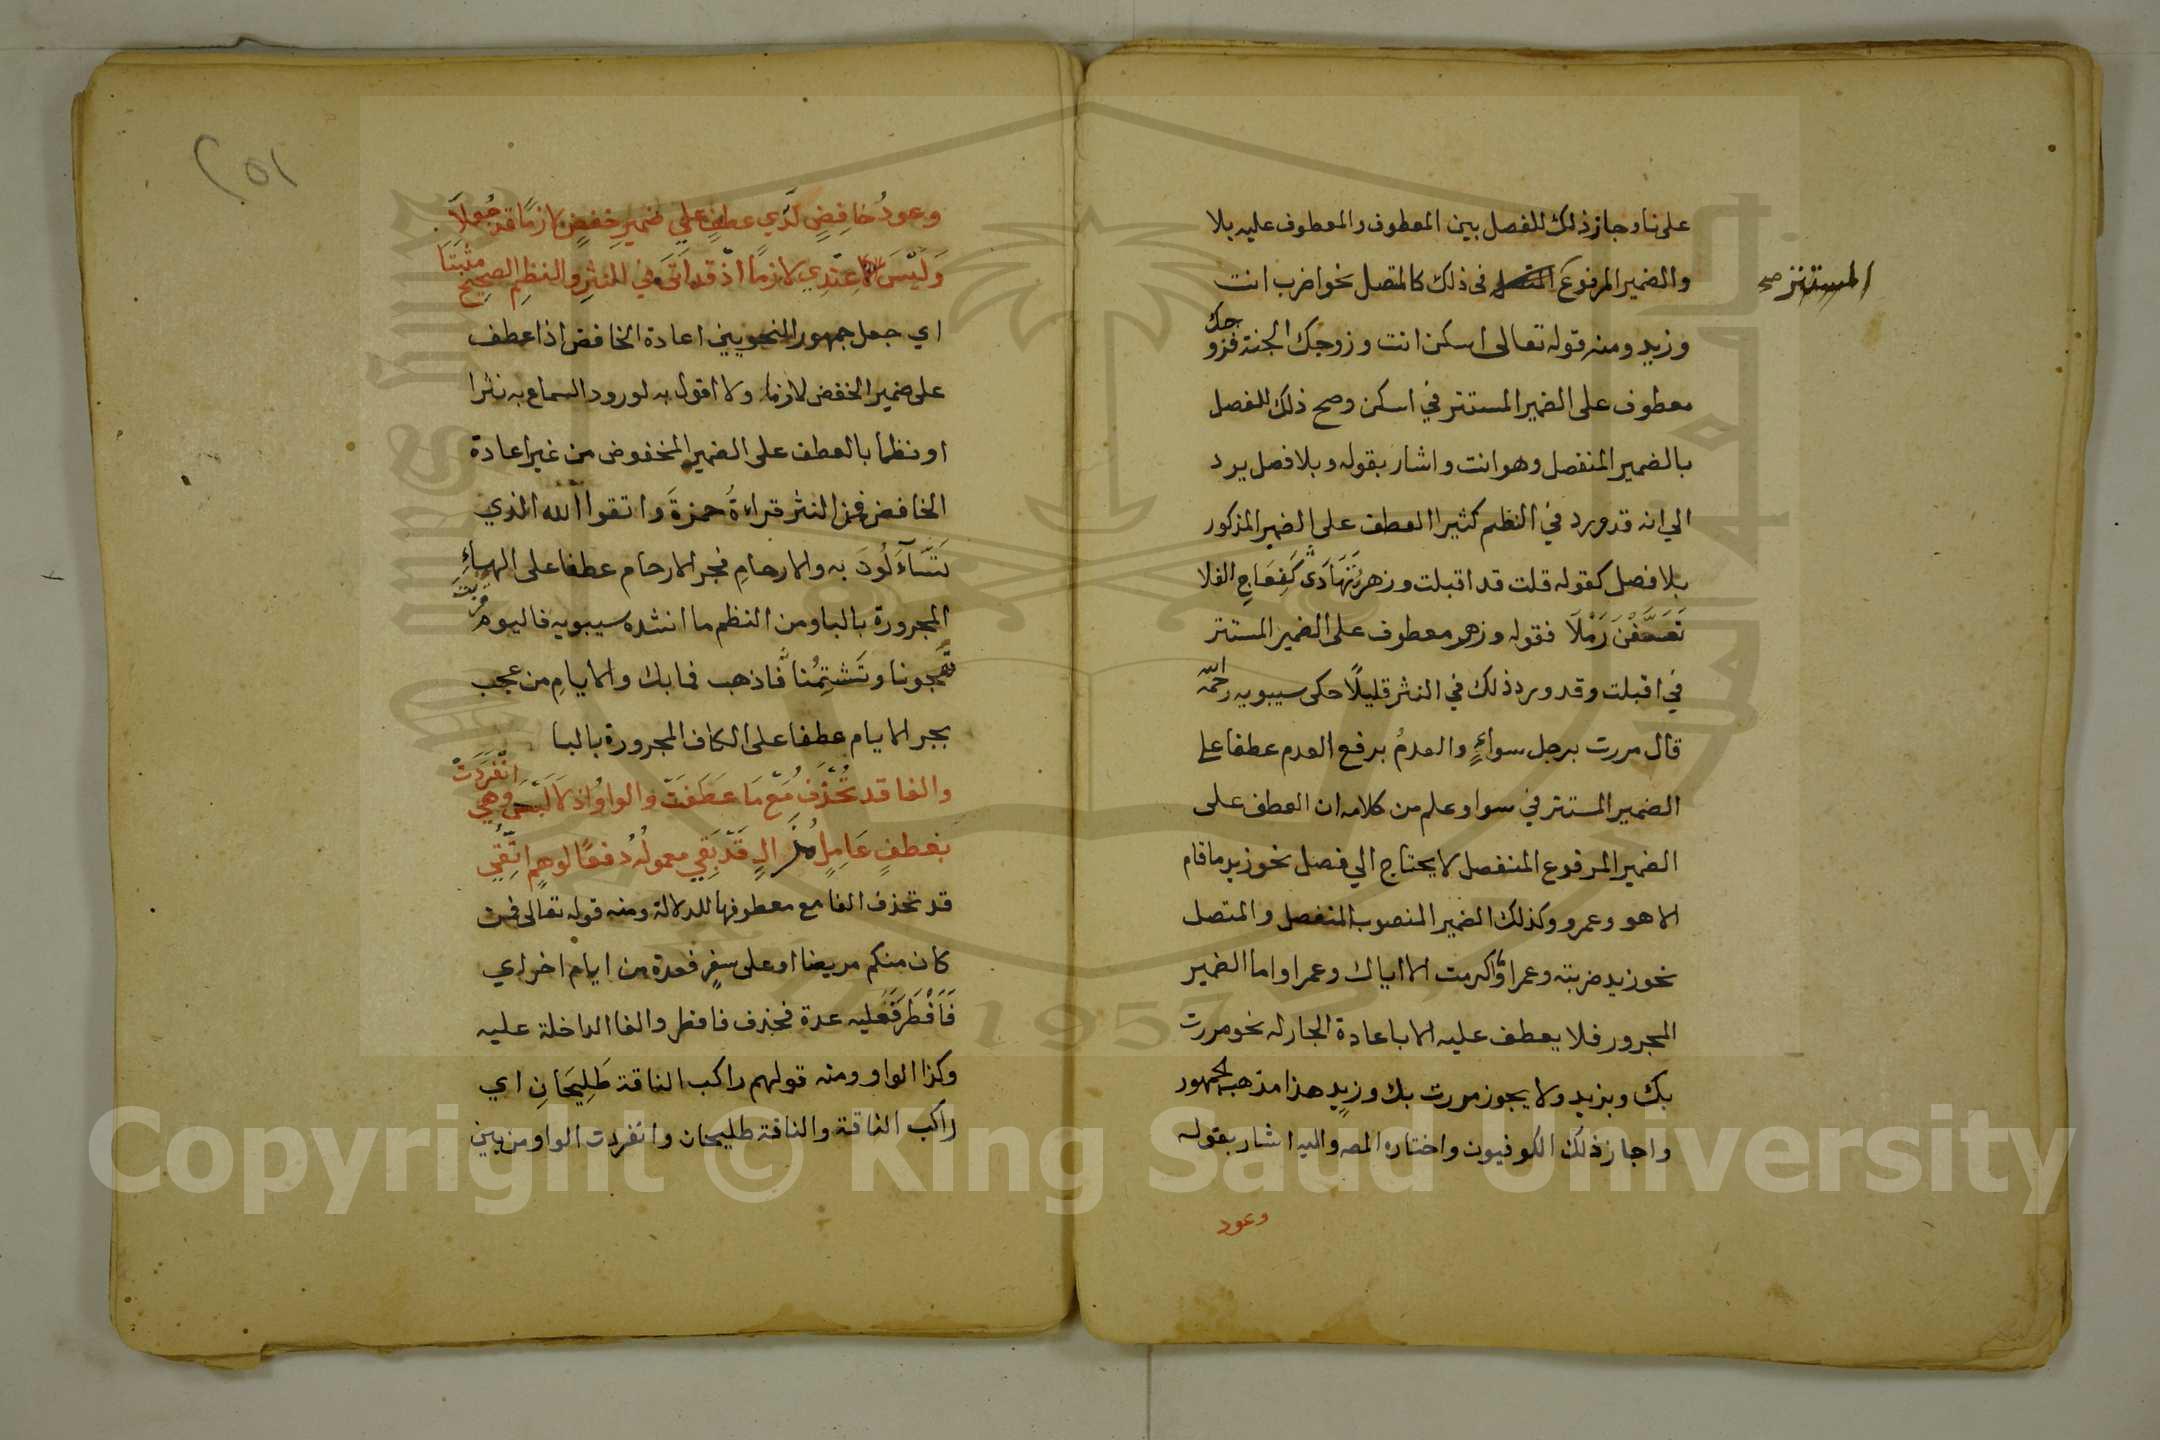 على نا وجاز ذلك للفصل بين المعطوف والمعطوف عليه بلا
والضمير المرفوع المتصل فى ذلك كالمتصل نحو اضرب انت
المستتر صح
وزيد ومنه قوله تعالى اسكن انت وزوجك الجنة فزوجك
معطوف على الضمير المستتر في اسكن وصح ذلك للفصل
بالضمير المنفصل وهو انت واشار بقوله وبلا فصل يرد
الي انه قد ورد في النظم كثيرا العطف على الضمير المذكور
بلا فصل كقوله قلت قد اقبلت وزهر تهادى كنعاج الفلا
تعسفن رملا فقوله وزهر معطوف على الضمير المستتر
في اقبلت وقد ورد ذلك في النثر قليلًا حكى سيبويه رحمه الله
قال مررت برجل سواءٍ والعدمُ برفع العدم عطفا على
الضمير المستتر في سوا وعلم من كلامه ان العطف على
الضمير المرفوع المنفصل لا يحتاج الي فصل نحو زيد ما قام
الا هو وعمرو وكذلك الضمير المنصوب المنفصل والمتصل
نحو زيد ضربته وعمرا وما اكرمت الا اياك وعمرا واما الضمير
المجرور فلا يعطف عليه الا باعادة الجار له نحو مررت
بك وبزيد ولا يجوز مررت بك وزيدٍ هذا مذهب الجمهور
واجاز ذلك الكوفيون واختاره المص واليه اشار بقوله
وعود
١٥٢
وعودُ خافِضٍ لَدَي عطفٍ علي ضميرِ خفضٍ لازمًا قد جُعِلَا
وَلَيْسَ عِنْدِي لازمًا اذ قد اَتَى في النثرِ والنظمِ الصحيحِ مثبتَا
اي جعل جمهور النحويين اعادة الخافض اذا عطف
على ضمير الخفض لازما ولا اقول به لورود السماع به نثرا
او نظما بالعطف على الضمير المخفوض من غير اعادة
الخافض فمن النثر قراءةُ حمزةَ واتقوا الله الذي
تَسَّآءَلُونَ به والارحامِ فجر الارحام عطفا على الهاءِ
المجرورة بالبا ومن النظم ما انشده سيبويه فاليوم قربت
تهجونا وتَشتِمُنا فاذهب فما بك والايامِ من عجب
بجر الايام عطفا على الكاف المجرورة بالبا
والفا قد تُحْذَفُ مَعْ مَا عَطَفَتْ والواوُ اذ لا لَبْسَ وهي انْفَرَدَتْ
بعطفِ عَامِلٍ مُزَالٍ قَدْ بَقِي معمولُه دُفعًا لوهمٍ اتُّقِي
قد تحذف الفا مع معطوفها للدلالة ومنه قوله تعالى فمن
كان منكم مريضا او على سفرٍ فعدة من ايام اخر اي
فَاَفْطَرَ فَعَليه عدة فحذف فافطر والفا الداخلة عليه
وكذا الواو ومنه قولهم راكب الناقة طَلِيحَانِ اي
راكب الناقة والناقة طليحان وانفردت الواو من بين
Copyright © King Saud University
1957